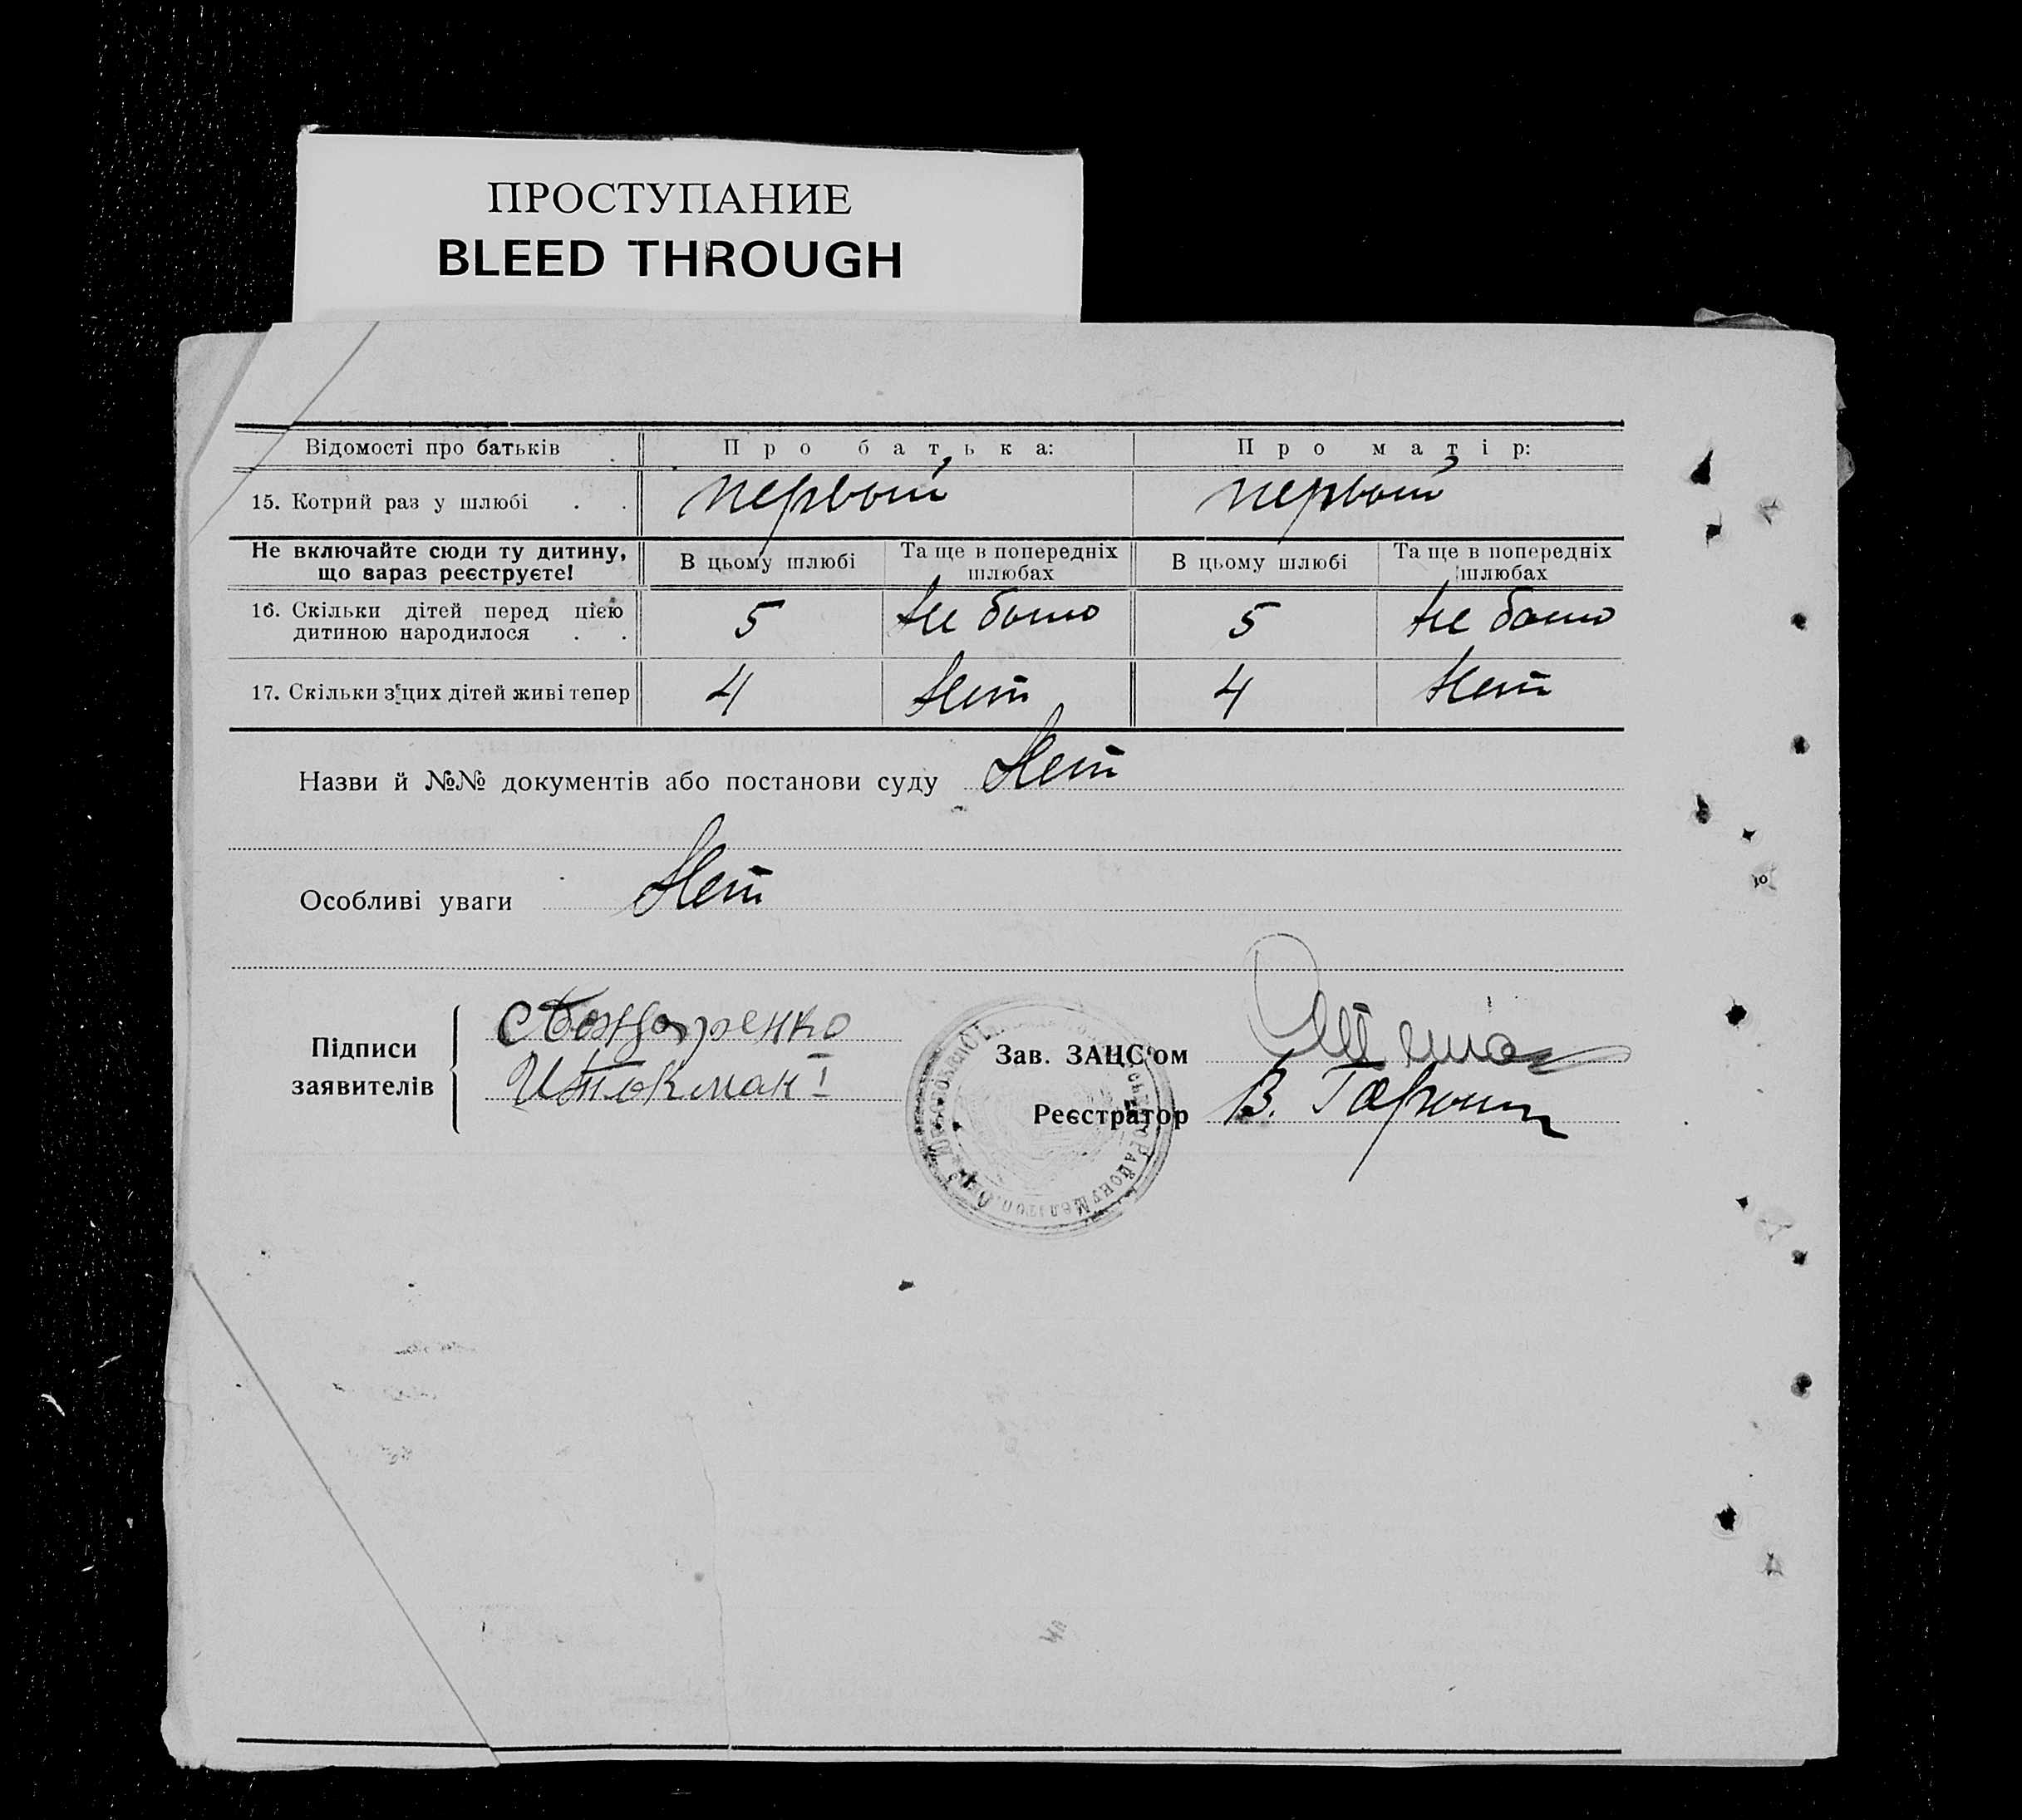 ПРОСТУПАНИЕ
BLEED THROUGH
Відомості про батьків Про батька: Про матір:
15. Котрий раз у шлюбі . . первый первый
Не включайте сюди ту дитину, що зараз реєструєте! В цьому шлюбі Та ще в попередніх шлюбах В цьому шлюбі Та ще в попередніх шлюбах
16. Скільки дітей перед цією дитиною народилося . . 5 не было 5 не было
17. Скільки з цих дітей живі тепер 4 Нет 4 Нет
Назви й №№ документів або постанови суду Нет
Особливі уваги Нет
Підписи заявителів
Бондаренко
Штокман
Зав. ЗАЦС'ом
Реєстратор В.